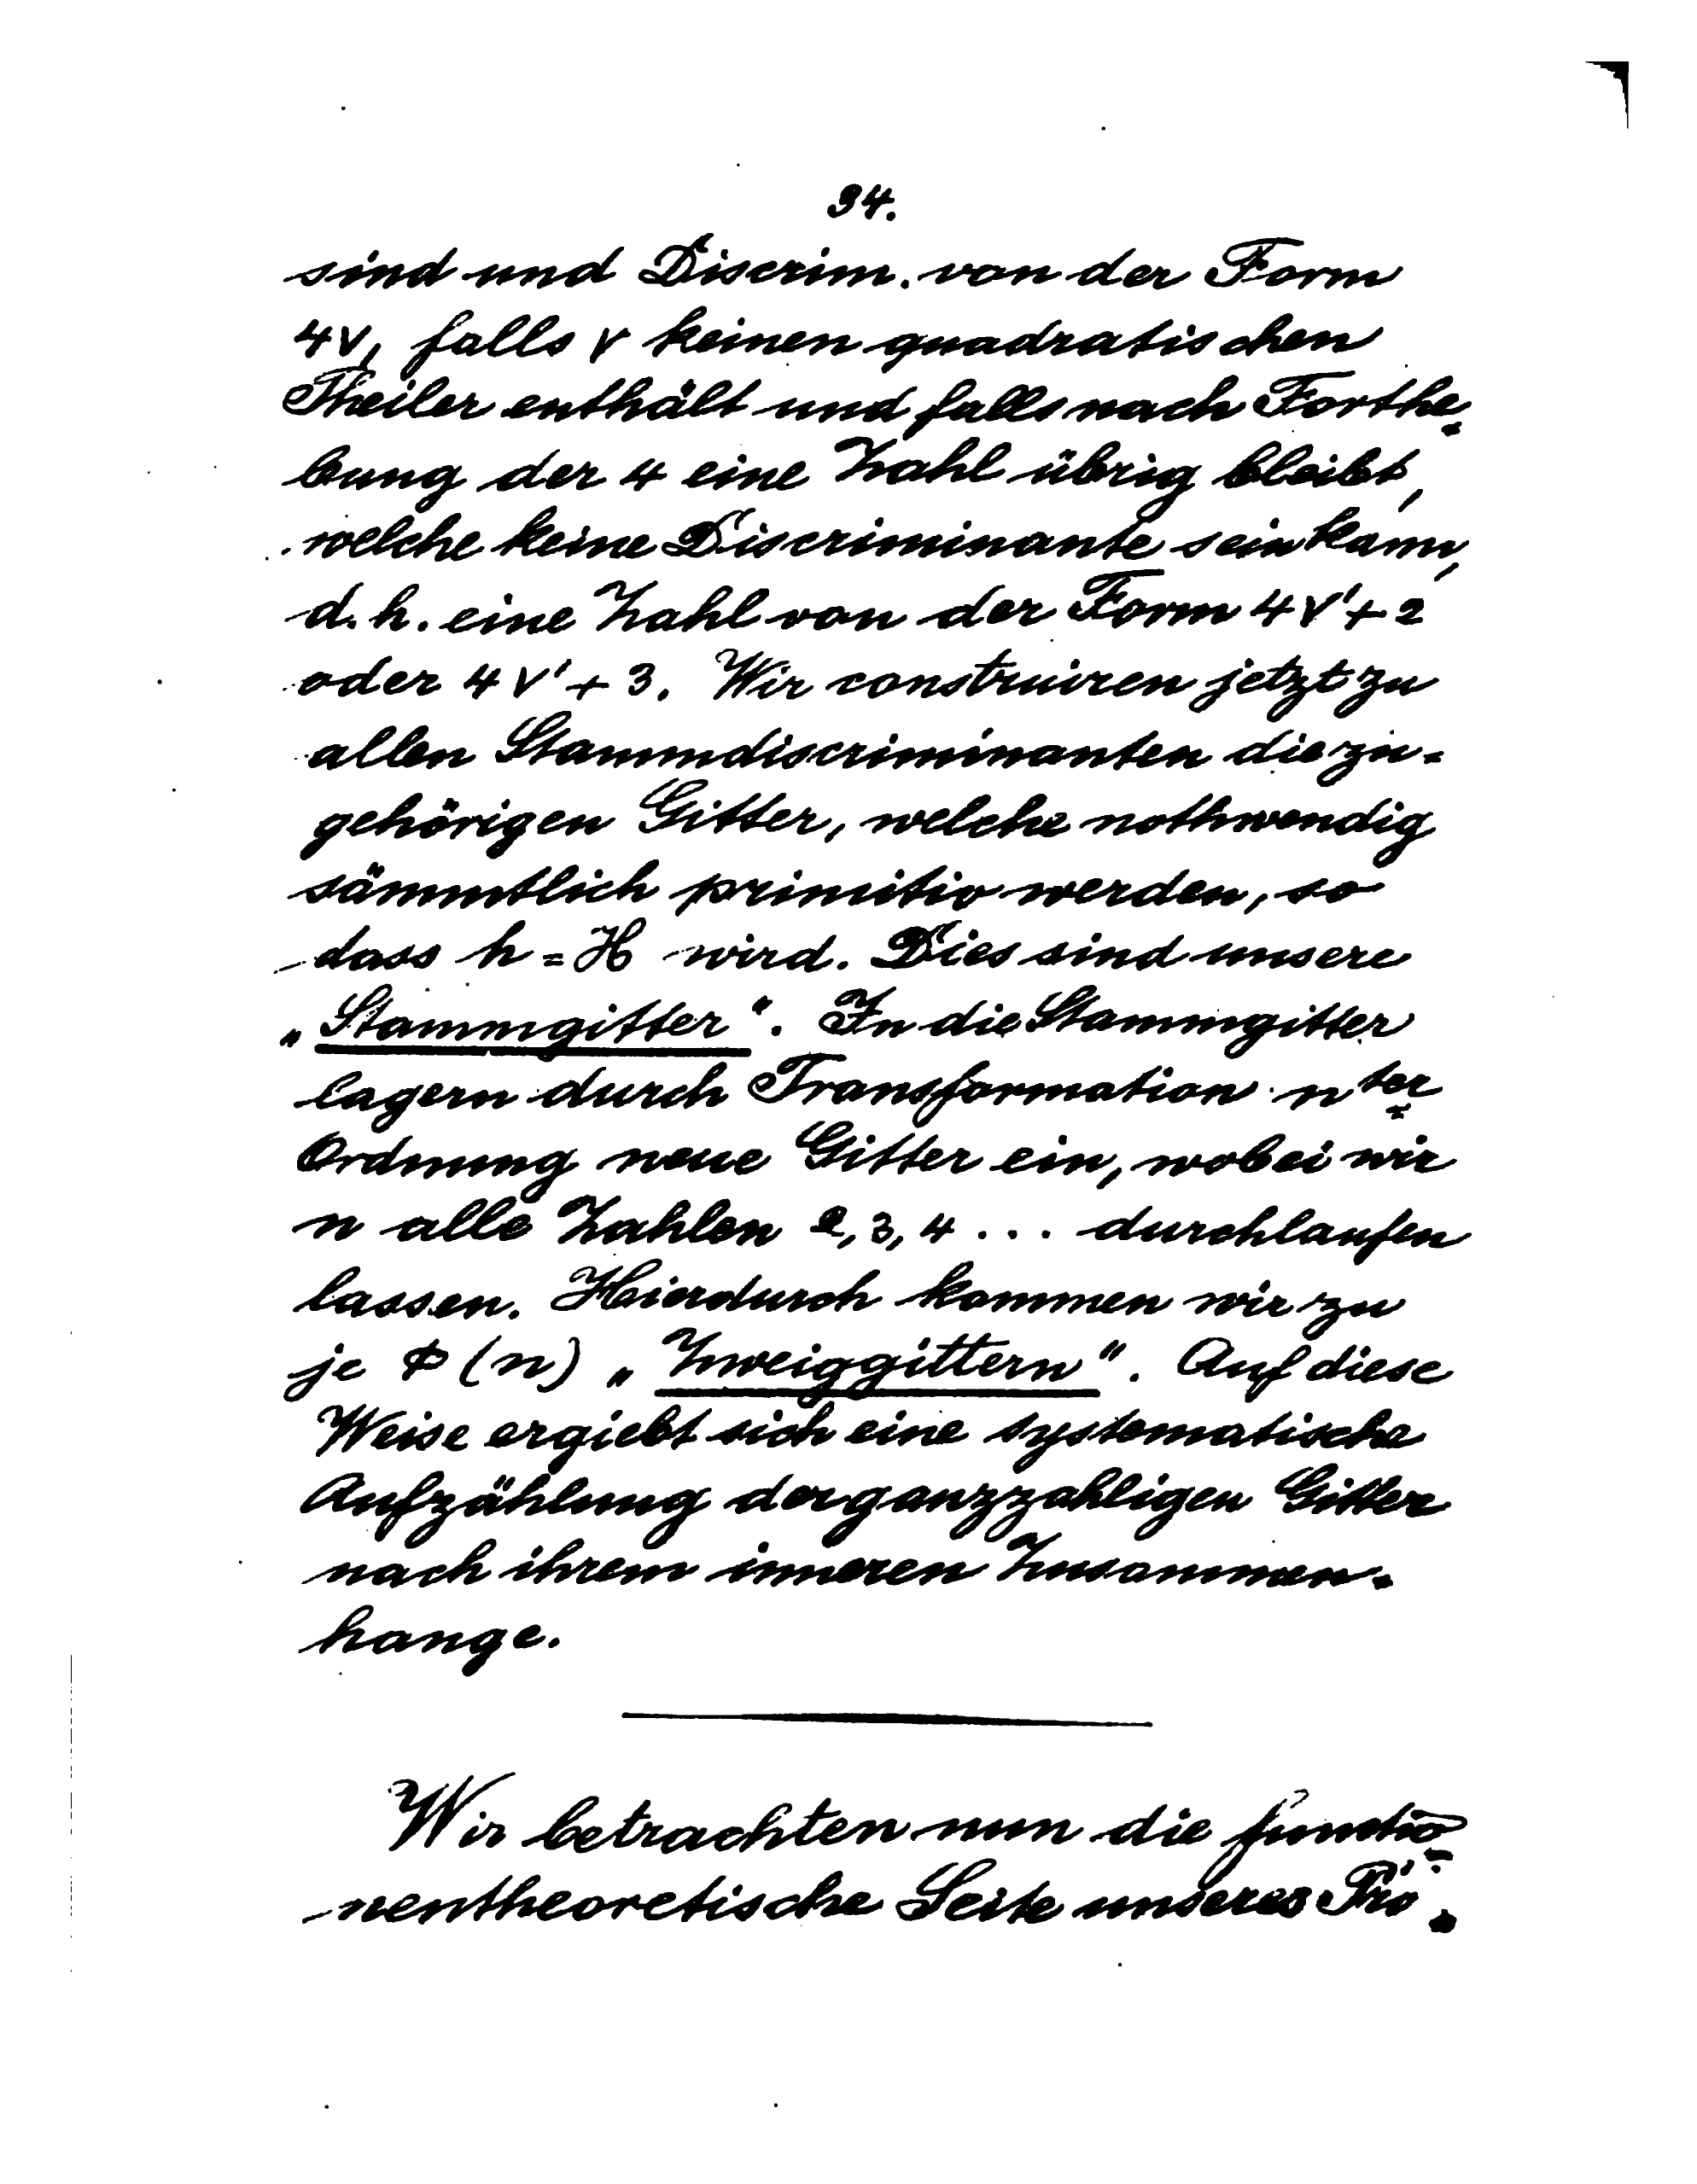 34.
sind und Discrim. von der Form
4ν, falls ν keinen quadratischen
Theiler enthält und falls nach Forthe-
bung der 4 eine Zahl übrig bleibt,
welche keine Discriminante sein kann,
d. h. eine Zahl von der Form 4ν'+2
oder 4ν'+3. Wir construiren jetzt zu
allen Stammdiscriminanten die zu-
gehörigen Gitter, welche nothwendig
sämmtlich primitiv werden, so
dass h = H wird. Dies sind unsere
„Stammgitter“. In die Stammgitter
lagern durch Transformation nter
Ordnung neue Gitter ein, wobei wir
n alle Zahlen 2, 3, 4 ... durchlaufen
lassen. Hierdurch kommen wir zu
je Φ(n) „Zweiggittern“. Auf diese
Weise ergiebt sich eine systematische
Aufzählung der ganzzahligen Gitter
nach ihrem inneren Zusammen-
hange.
Wir betrachten nun die functio-
nentheoretische Seite unseres Pro-